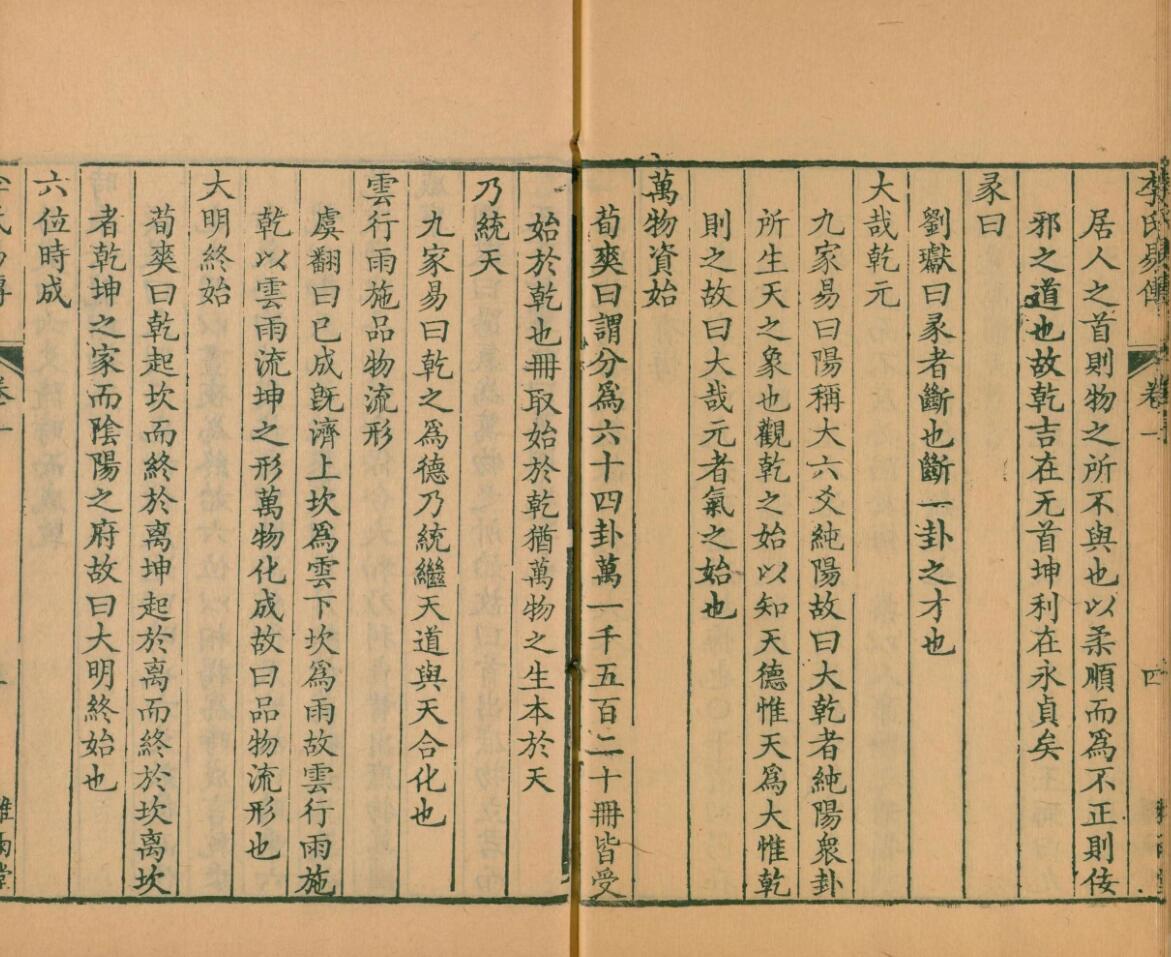 李氏易傳 卷一 四
居人之首則物之所不與也以柔順而爲不正則佞
邪之道也故乾吉在无首坤利在永貞矣
彖曰
劉瓛曰彖者斷也斷一卦之才也
大哉乾元
九家易曰陽稱大六爻純陽故曰大乾者純陽衆卦
所生天之象也觀乾之始以知天德惟天爲大惟乾
則之故曰大哉元者氣之始也
萬物資始
荀爽曰謂分爲六十四卦萬一千五百二十冊皆受
始於乾也冊取始於乾猶萬物之生本於天
乃統天
九家易曰乾之爲德乃統繼天道與天合化也
雲行雨施品物流形
虞翻曰已成旣濟上坎爲雲下坎爲雨故雲行雨施
乾以雲雨流坤之形萬物化成故曰品物流形也
大明終始
荀爽曰乾起坎而終於离坤起於离而終於坎离坎
者乾坤之家而陰陽之府故曰大明終始也
六位時成
卷一 雅雨堂